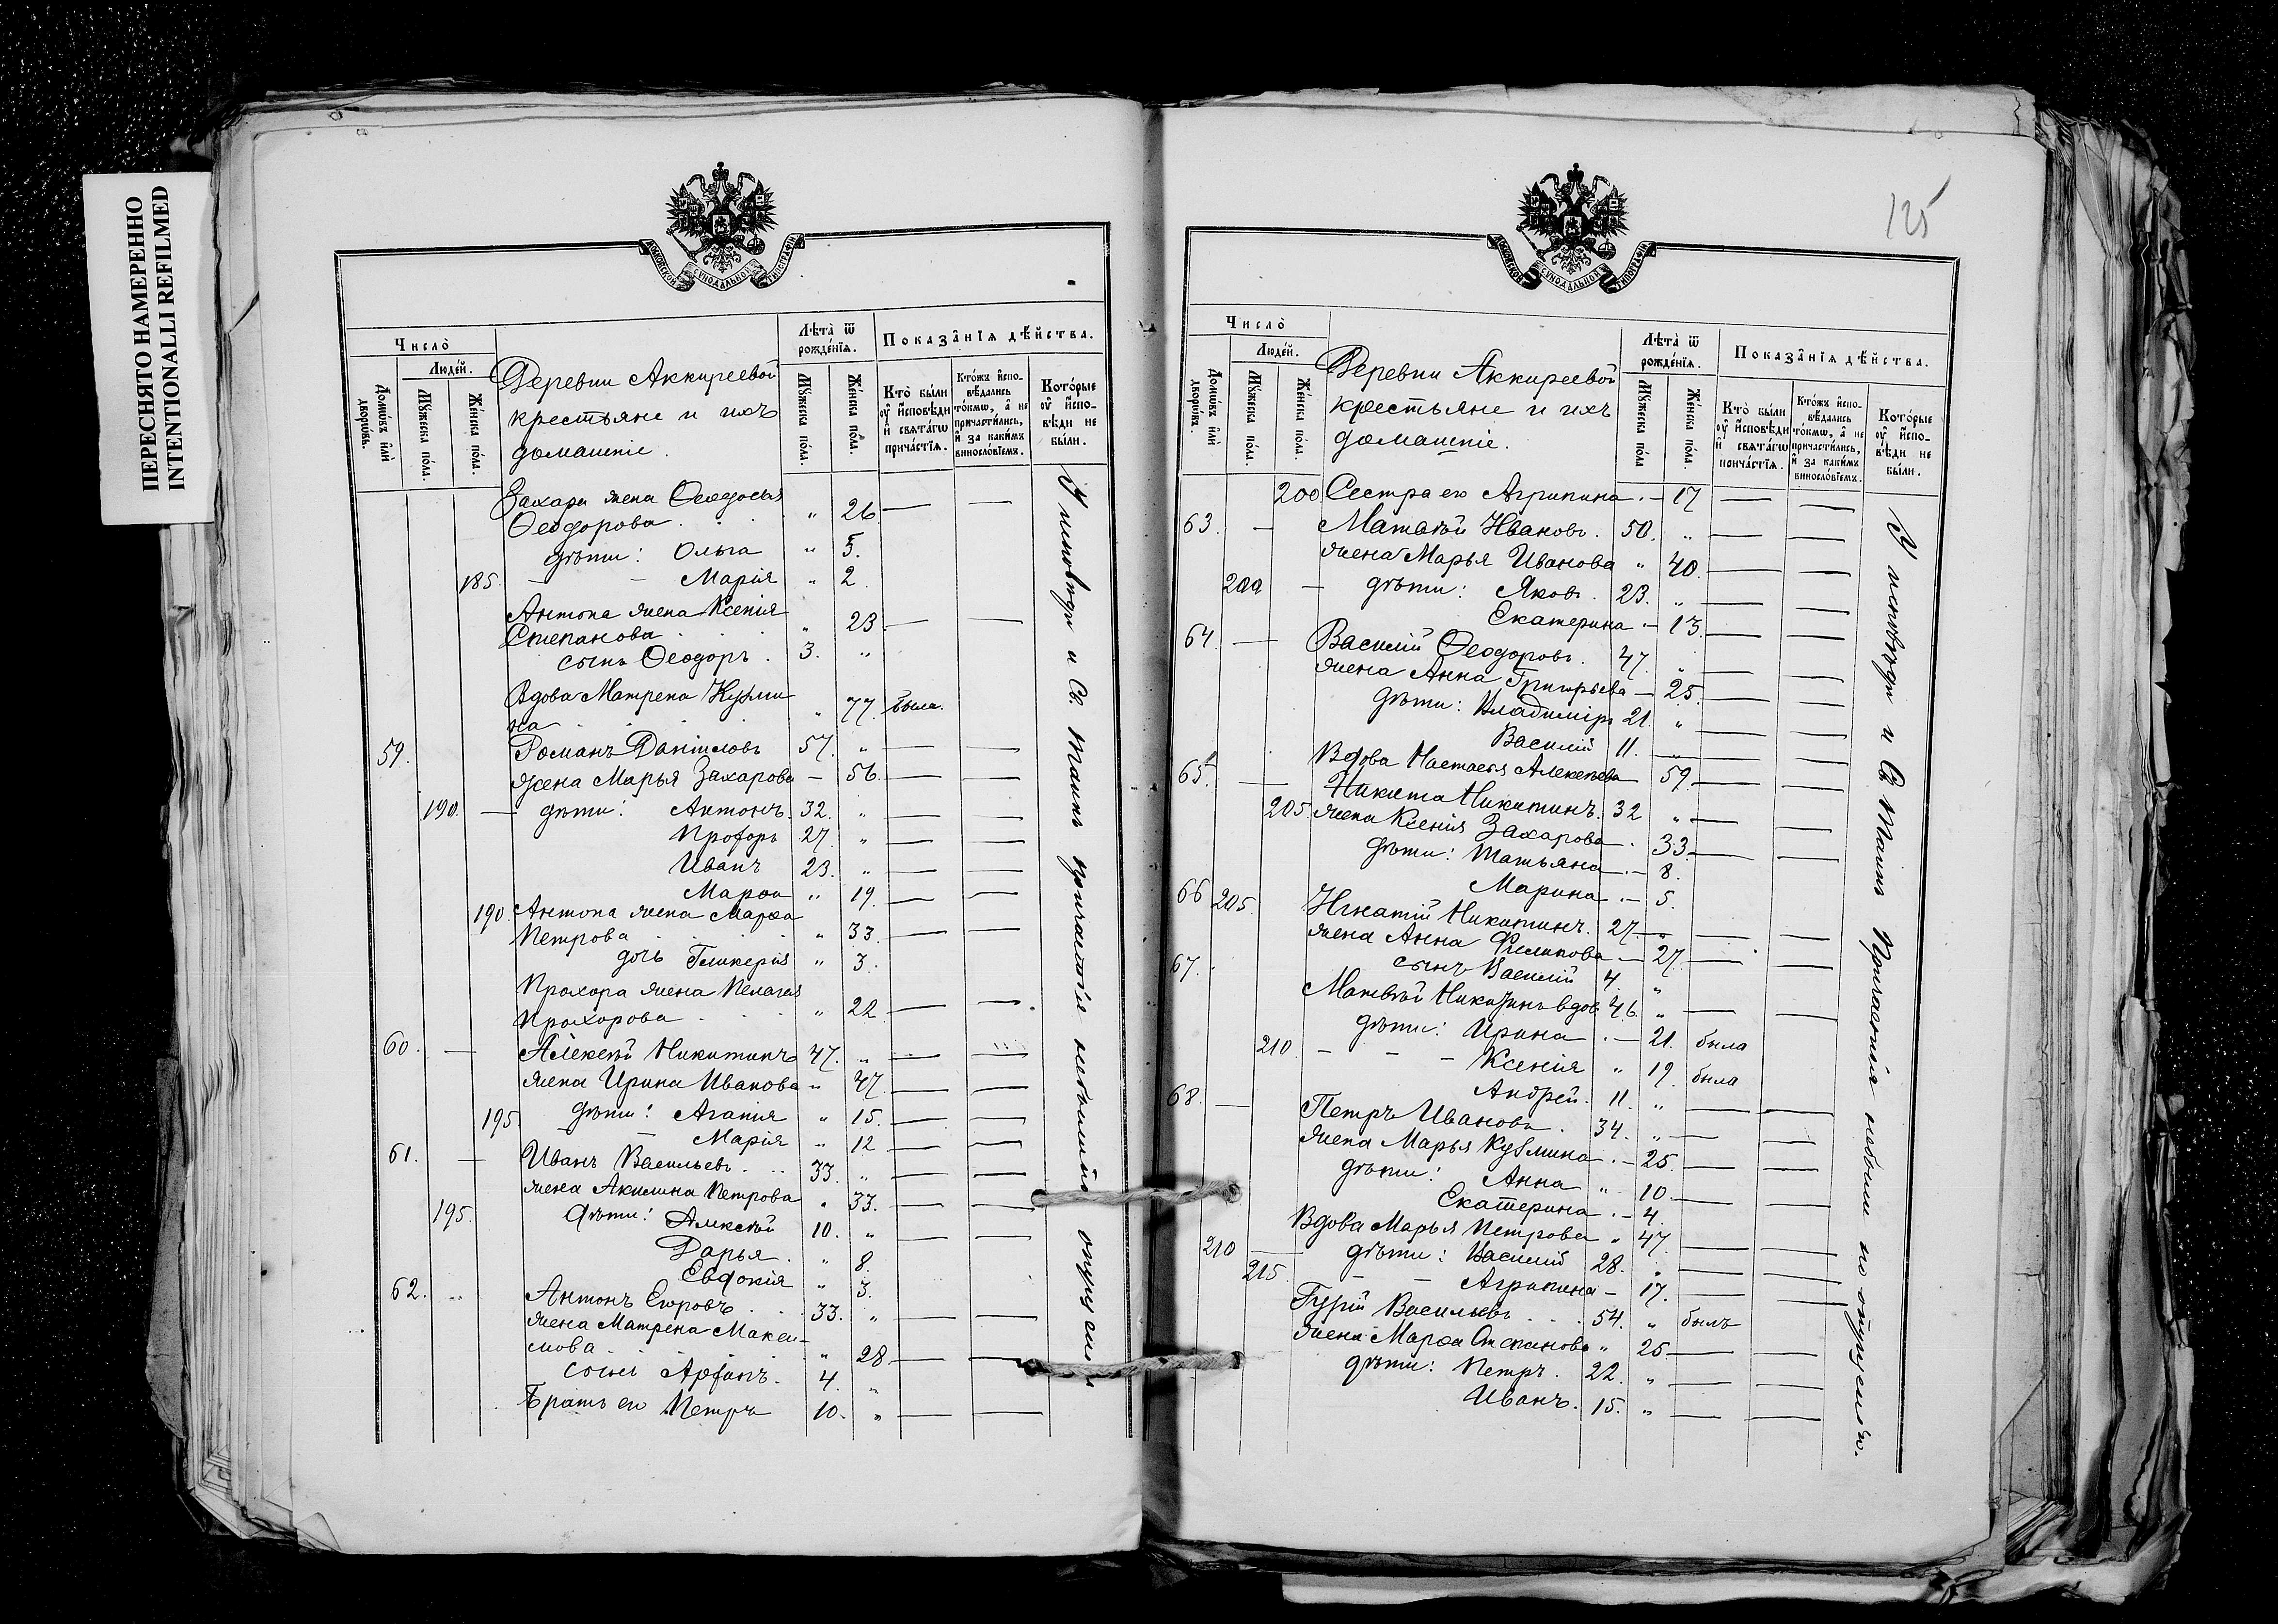 ПЕРЕСНЯТО НАМЕРЕННО
INTENTIONALLI REFILMED
МОСКОВСКОЙ СѴНОДАЛЬНОЙ ТИПОГРАФІИ
Число̀
Людéй.
Домѡ́въ и҆лѝ дворѡ́въ.
Мꙋ́жеска по́ла.
Же́нска по́ла.
Деревни Аккиреевой
крестьяне и ихъ
домашніе.
Лѣта̀ ѿ рожде́нїѧ.
Мꙋ́жеска по́ла.
Же́нска по́ла.
Показа̑нїѧ дѣ́йства.
Кто̀ бы́ли ᲂу҆ и҆сповѣ́ди и҆ свѧта́гѡ прича́стїѧ.
Кто́жъ и҆спо-вѣ́дались то́кмѡ, а҆ не причасти́лись, и҆ за каки́мъ винослові́емъ.
Кото́рые ᲂу҆ и҆спо-вѣ́ди не бы́ли.
Захара жена Ѳеодосья
Ѳеодорова . . " 26. — —
дѣти: Ольга " 5.
185. — — Марія " 2.
Антона жена Ксенія
Степанова . . . " 23. — —
сынъ Ѳеодоръ . 3. "
Вдова Матрена Кузми
на . . . " 77. была.
59. Романъ Даниловъ 57. " — —
жена Марья Захарова — 56. — —
190. — дѣти: Антонъ. 32. " — —
Прохоръ 27. " — —
Иванъ 23. " — —
Марѳа " 19. — —
190. Антона жена Марѳа
Петрова . . . " 33. — —
дочь Гликерія " 3.
Прохора жена Пелагея
Прохорова . . . " 22. — —
60. — Алексѣй Никитинъ 47. " — —
жена Ирина Иванова " 47. — —
195. дѣти: Агапія " 15. — —
— Марія " 12 — —
61. — Иванъ Васильевъ. . . 33. " — —
жена Акилина Петрова " 33. — —
195. дѣти: Алексѣй 10. " — —
Дарья . " 8.
Евдокія " 3.
62. " Антонъ Егоровъ . . 33. " — —
жена Матрена Макси-
мова . . . " 28 — —
сынъ . 4. "
Братъ его Петръ 10. " — —
У исповѣди и Св. Таинъ причастія небыли по опущенію
125
МОСКОВСКОЙ СѴНОДАЛЬНОЙ ТИПОГРАФІИ
Число̀
Людéй.
Домѡ́въ и҆лѝ дворѡ́въ.
Мꙋ́жеска по́ла.
Же́нска по́ла.
Деревни Аккиреевой
крестьяне и ихъ
домашніе.
Лѣта̀ ѿ рожде́нїѧ.
Мꙋ́жеска по́ла
Же́нска по́ла.
Показа̑нїѧ дѣ́йства.
Кто̀ бы́ли ᲂу҆ и҆сповѣ́ди и҆ свѧта́гѡ прича́стїѧ.
Кто́жъ и҆спо-вѣ́дались то́кмѡ, а҆ не причасти́лись, и҆ за каки́мъ винослові́емъ.
Кото́рые ᲂу҆ и҆спо-вѣ́ди не бы́ли.
200. Сестра его Агрипина . — 17 — —
63. — Матвѣй Ивановъ. 50. " — —
жена Марья Иванова " 40. — —
200 — дѣти: Яковъ. 23. " — —
Екатерина . — 13. — —
64. — Василій Ѳеодоровъ. 47. " — —
жена Анна Григорьева — 25. — —
дѣти: Владиміръ 21. " — —
Василій 11. " — —
65. — Вдова Настасья Алексѣева 59. — —
Никита Никитинъ. 32 " — —
205. жена Ксенія Захарова . 33. — —
дѣти: Татьяна . — 8.
Марина . — 5.
66 205. Игнатій Никитинъ. 27. — " — —
жена Анна Филипова — 27. — —
сынъ Василій 4. "
67. Матвѣй Никитинъ вдов. 46. " — —
дѣти: Ирина . — 21. была
210. — — — Ксенія " 19. была
Андрей. 11. " — —
68. — Петръ Ивановъ . 34. " — —
жена Марья Кузмина . — 25. — —
дѣти: Анна " 10. — —
Екатерина . — 4.
Вдова Марья Петрова " 47. — —
210 — дѣти: Василій 28. " — —
215. — — Агрипина — 17. — —
Гурій Васильевъ . . . 54. " былъ
жена Марѳа Степанова " 25. — —
дѣти: Петръ. 22. " — —
Иванъ. 15. " — —
У исповѣди и Св Таинъ Причастія небыли по опущенію.